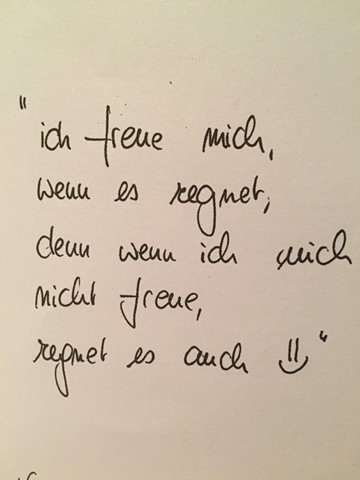 "ich freue mich,
wenn es regnet,
denn wenn ich mich
nicht freue,
regnet es auch :)"